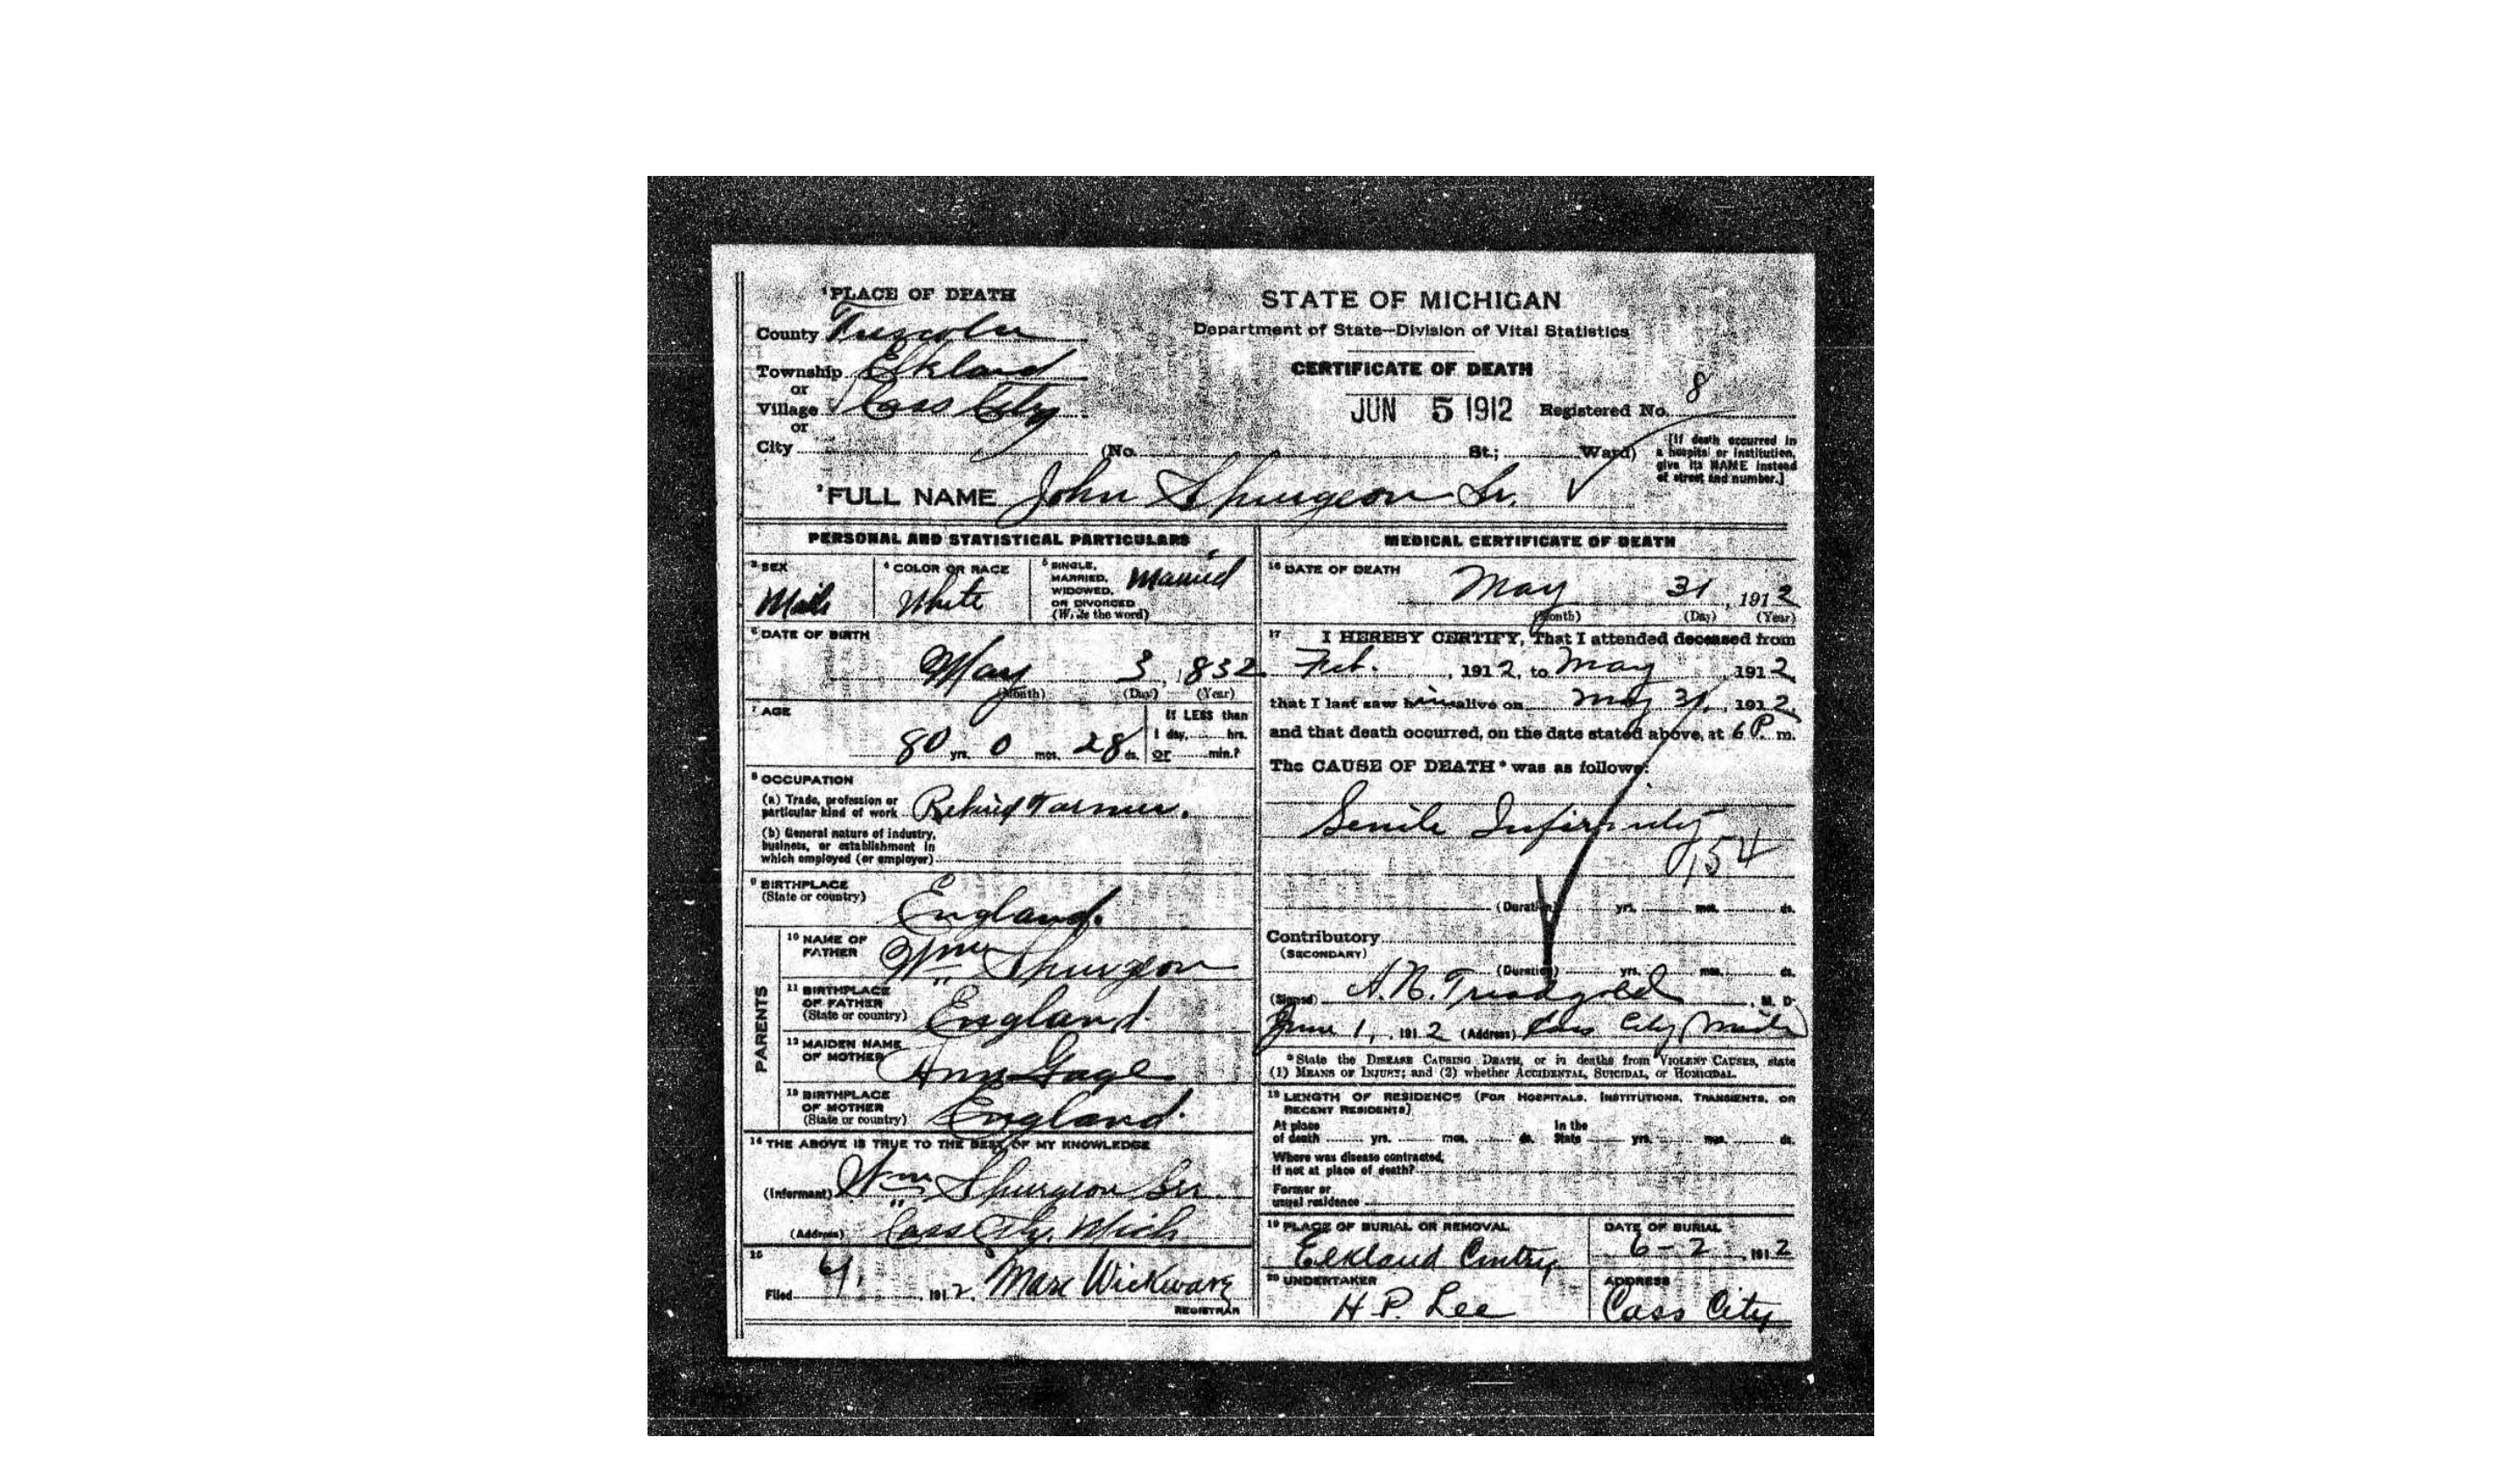 ¹PLACE OF DEATH
County Tuscola
Township Elkland
or
Village Cass City
or
City
STATE OF MICHIGAN
Department of State—Division of Vital Statistics
CERTIFICATE OF DEATH
JUN 5 1912 Registered No. 8
(No. St.; Ward)
[If death occurred in
a hospital or institution,
give its NAME instead
of street and number.]
²FULL NAME John Spurgeon Sr.
PERSONAL AND STATISTICAL PARTICULARS
³ SEX
Male
⁴ COLOR OR RACE
White
⁵ SINGLE,
MARRIED,
WIDOWED,
OR DIVORCED
(Write the word)
Married
⁶ DATE OF BIRTH
May 3, 1832
(Month) (Day) (Year)
⁷ AGE
80 yrs. 0 mos. 28 ds.
If LESS than
1 day, hrs.
or min.?
⁸ OCCUPATION
(a) Trade, profession or
particular kind of work Retired Farmer.
(b) General nature of industry,
business, or establishment in
which employed (or employer)
⁹ BIRTHPLACE
(State or country)
England.
PARENTS
¹⁰ NAME OF
FATHER
Wm Spurgeon
¹¹ BIRTHPLACE
OF FATHER
(State or country)
England.
¹² MAIDEN NAME
OF MOTHER
Ann Gage
¹³ BIRTHPLACE
OF MOTHER
(State or country)
England.
¹⁴ THE ABOVE IS TRUE TO THE BEST OF MY KNOWLEDGE
(Informant) Wm Spurgeon
(Address) Cass City, Mich
¹⁵
Filed 1912, Mare Wickware
REGISTRAR
MEDICAL CERTIFICATE OF DEATH
¹⁶ DATE OF DEATH
May 31, 1912
(Month) (Day) (Year)
¹⁷ I HEREBY CERTIFY, That I attended deceased from
Feb. , 1912, to May , 1912,
that I last saw him alive on May 31, 1912,
and that death occurred, on the date stated above, at 6 P. m.
The CAUSE OF DEATH* was as follows:
Senile Infirmity
154
(Duration) yrs. mos. ds.
Contributory
(SECONDARY)
(Duration) yrs. mos. ds.
(Signed) A. N. Treadgold, M. D.
June 1, 1912 (Address) Cass City Mich
*State the DISEASE CAUSING DEATH, or in deaths from VIOLENT CAUSES, state
(1) MEANS OF INJURY; and (2) whether ACCIDENTAL, SUICIDAL, or HOMICIDAL.
¹⁸ LENGTH OF RESIDENCE (FOR HOSPITALS, INSTITUTIONS, TRANSIENTS, OR
RECENT RESIDENTS)
At place In the
of death yrs. mos. ds. State yrs. mos. ds.
Where was disease contracted,
if not at place of death?
Former or
usual residence
¹⁹ PLACE OF BURIAL OR REMOVAL
Elkland Cmtry
DATE OF BURIAL
6-2 1912
²⁰ UNDERTAKER
H. P. Lee
ADDRESS
Cass City